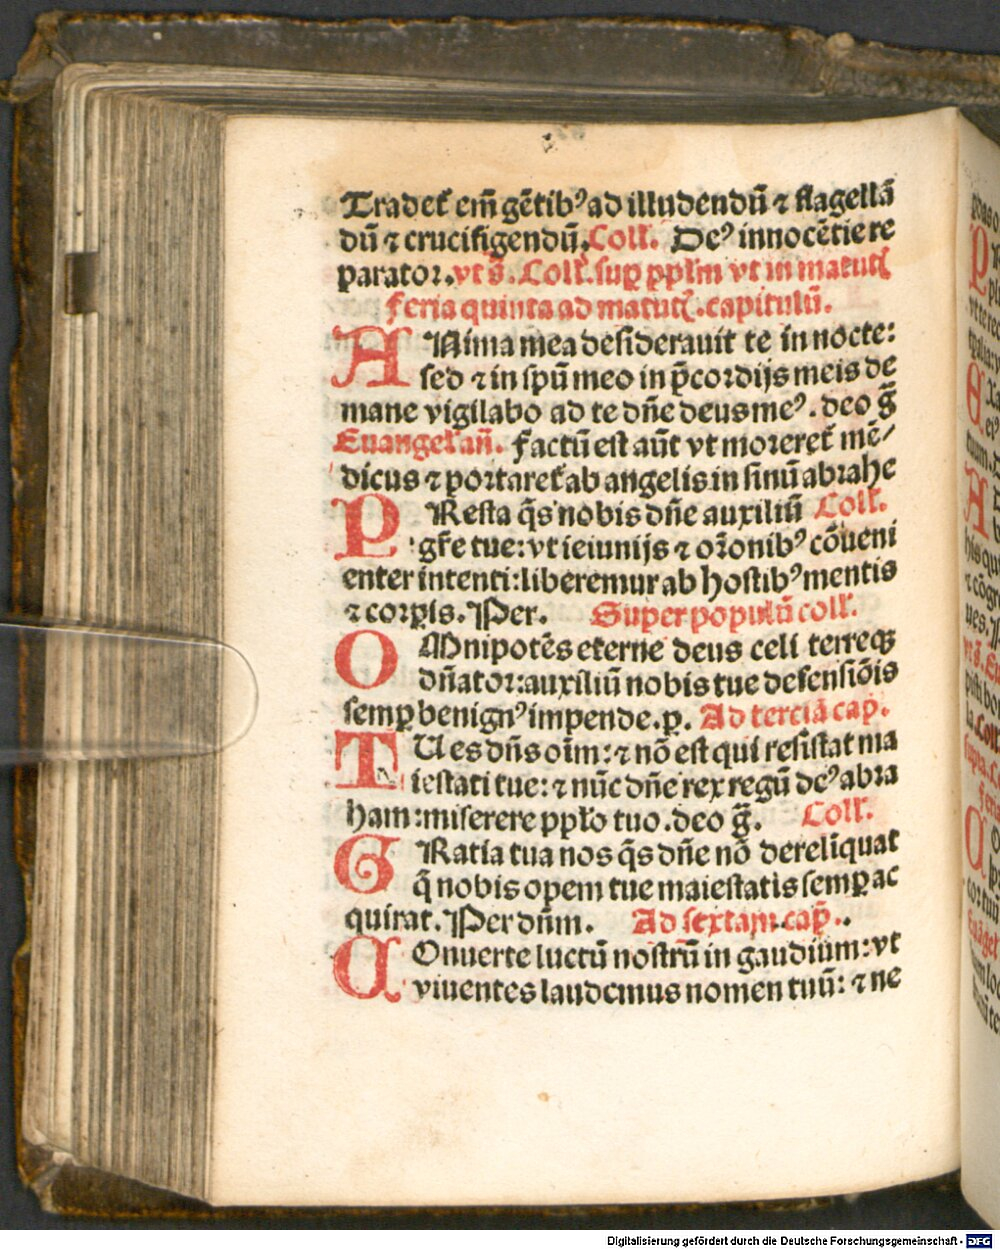 Tradet᷑ em̃ gẽtibꝰ ad illudendũ ⁊ flagellã
dũ ⁊ crucifigendũ. Coll. Deꝰ innocẽtie re
parator. vt s̃. Coll. suꝑ pp̃lm vt in matut᷑
feria quinta ad matut᷑. capitulũ.
ANima mea desiderauit te in nocte:
sed ⁊ in spũ meo in p̃cordijs meis de
mane vigilabo ad te dñe deus meꝰ. deo g̃
Euangel᷑ añ. Factũ est aũt vt moreret᷑ mẽ/
dicus ⁊ portaret᷑ ab angelis in sinũ abrahe
PResta q̃s nobis dñe auxiliũ Coll.
gr̃e tue: vt ieiunijs ⁊ oꝛõnibꝰ cõueni
enter intenti: liberemur ab hostibꝰ mentis
⁊ corꝑis. Per. Super populũ coll.
OMnipotẽs eterne deus celi terreqꝫ
dñatoꝛ: auxiliũ nobis tue defensiõis
semꝑ benignꝰ impende. p. Ad terciã cap.
TU es dñs oĩm: ⁊ nõ est qui resistat ma
iestati tue: ⁊ nũc dñe rex regũ deꝰ abꝛa
ham: miserere ppl̃o tuo. deo g̃. Coll.
GRatia tua nos q̃s dñe nõ derelinquat
q̃ nobis opem tue maiestatis semꝑ ac
quirat. Per dñm. Ad sextam. cap̃.
COnuerte luctũ nostrũ in gaudium: vt
viuentes laudemus nomen tuũ: ⁊ ne
Digitalisierung gefördert durch die Deutsche Forschungsgemeinschaft - DFG